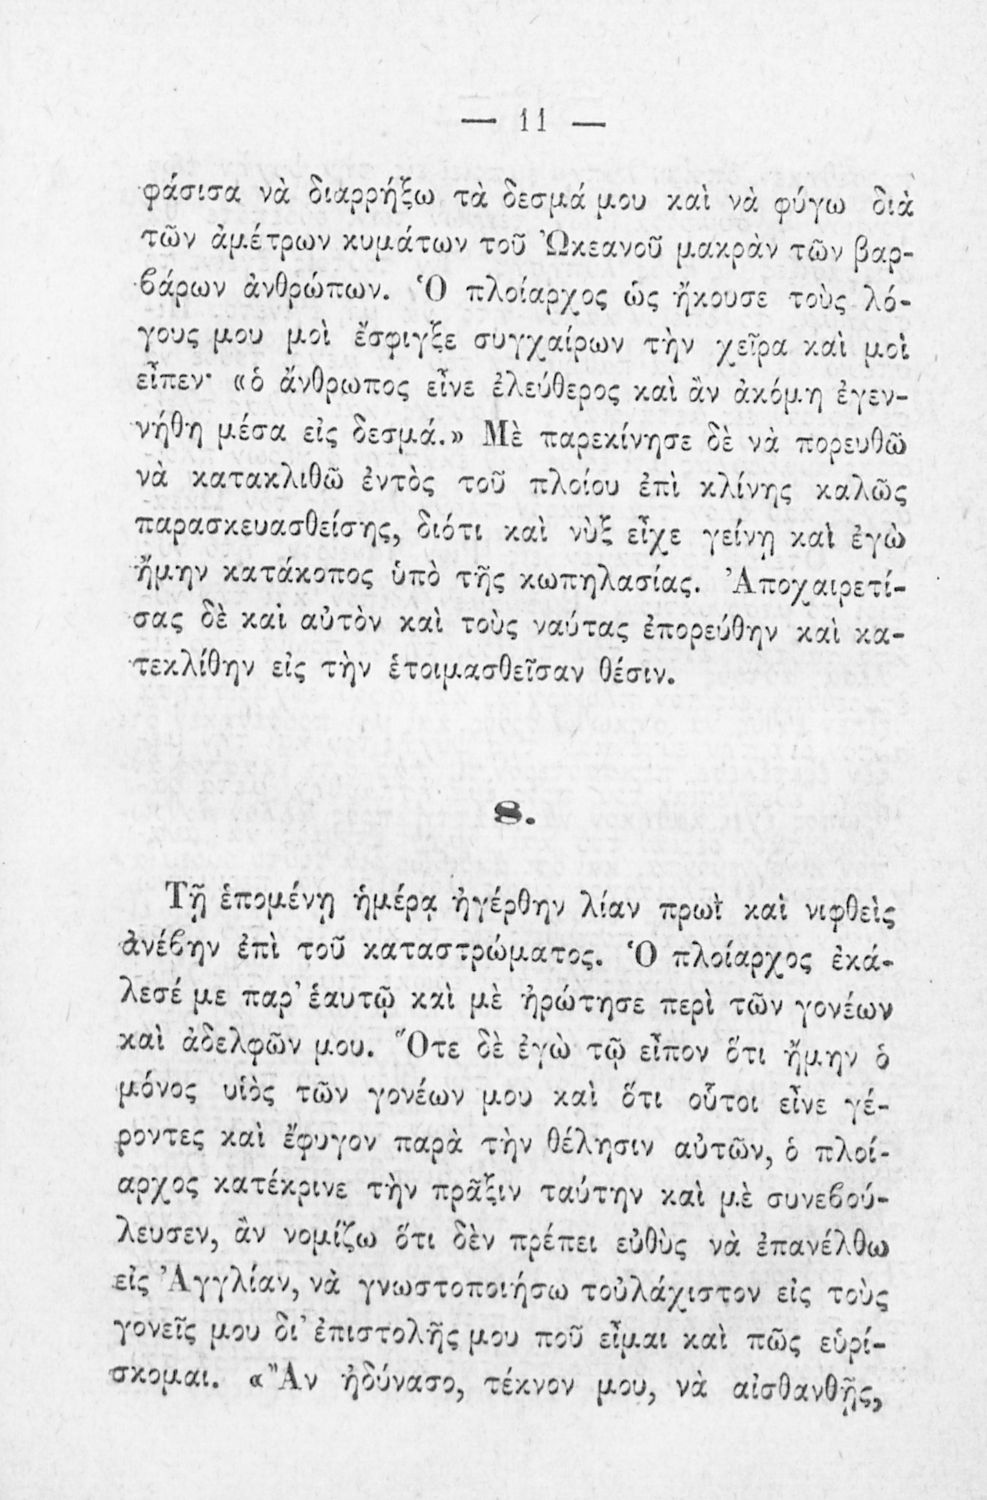 — 11 —
φάσισα νὰ διαρρήξω τὰ δεσμά μου καὶ νὰ φύγω διὰ
τῶν ἀμέτρων κυμάτων τοῦ Ὠκεανοῦ μακρὰν τῶν βαρ-
βάρων ἀνθρώπων. Ὁ πλοίαρχος ὡς ἤκουσε τοὺς λό-
γους μου μοὶ ἔσφιγξε συγχαίρων τὴν χεῖρα καὶ μοὶ
εἶπεν· «ὁ ἄνθρωπος εἶνε ἐλεύθερος καὶ ἂν ἀκόμη ἐγεν-
νήθη μέσα εἰς δεσμά.» Μὲ παρεκίνησε δὲ νὰ πορευθῶ
νὰ κατακλιθῶ ἐντὸς τοῦ πλοίου ἐπὶ κλίνης καλῶς
παρασκευασθείσης, διότι καὶ νὺξ εἶχε γείνῃ καὶ ἐγὼ
ἤμην κατάκοπος ὑπὸ τῆς κωπηλασίας. Ἀποχαιρετί-
σας δὲ καὶ αὐτὸν καὶ τοὺς ναύτας ἐπορεύθην καὶ κα-
τεκλίθην εἰς τὴν ἑτοιμασθεῖσαν θέσιν.
8.
Τῇ ἑπομένῃ ἡμέρᾳ ἠγέρθην λίαν πρωῒ καὶ νιφθεὶς
ἀνέβην ἐπὶ τοῦ καταστρώματος. Ὁ πλοίαρχος ἐκά-
λεσέ με παρ' ἑαυτῷ καὶ μὲ ἠρώτησε περὶ τῶν γονέων
καὶ ἀδελφῶν μου. Ὅτε δὲ ἐγὼ τῷ εἶπον ὅτι ἤμην ὁ
μόνος υἱὸς τῶν γονέων μου καὶ ὅτι οὗτοι εἶνε γέ-
ροντες καὶ ἔφυγον παρὰ τὴν θέλησιν αὐτῶν, ὁ πλοί-
αρχος κατέκρινε τὴν πρᾶξιν ταύτην καὶ μὲ συνεβού-
λευσεν, ἂν νομίζω ὅτι δὲν πρέπει εὐθὺς νὰ ἐπανέλθω
εἰς Ἀγγλίαν, νὰ γνωστοποιήσω τοὐλάχιστον εἰς τοὺς
γονεῖς μου δι' ἐπιστολῆς μου ποῦ εἶμαι καὶ πῶς εὑρί-
σκομαι. «Ἂν ἠδύνασο, τέκνον μου, νὰ αἰσθανθῇς,